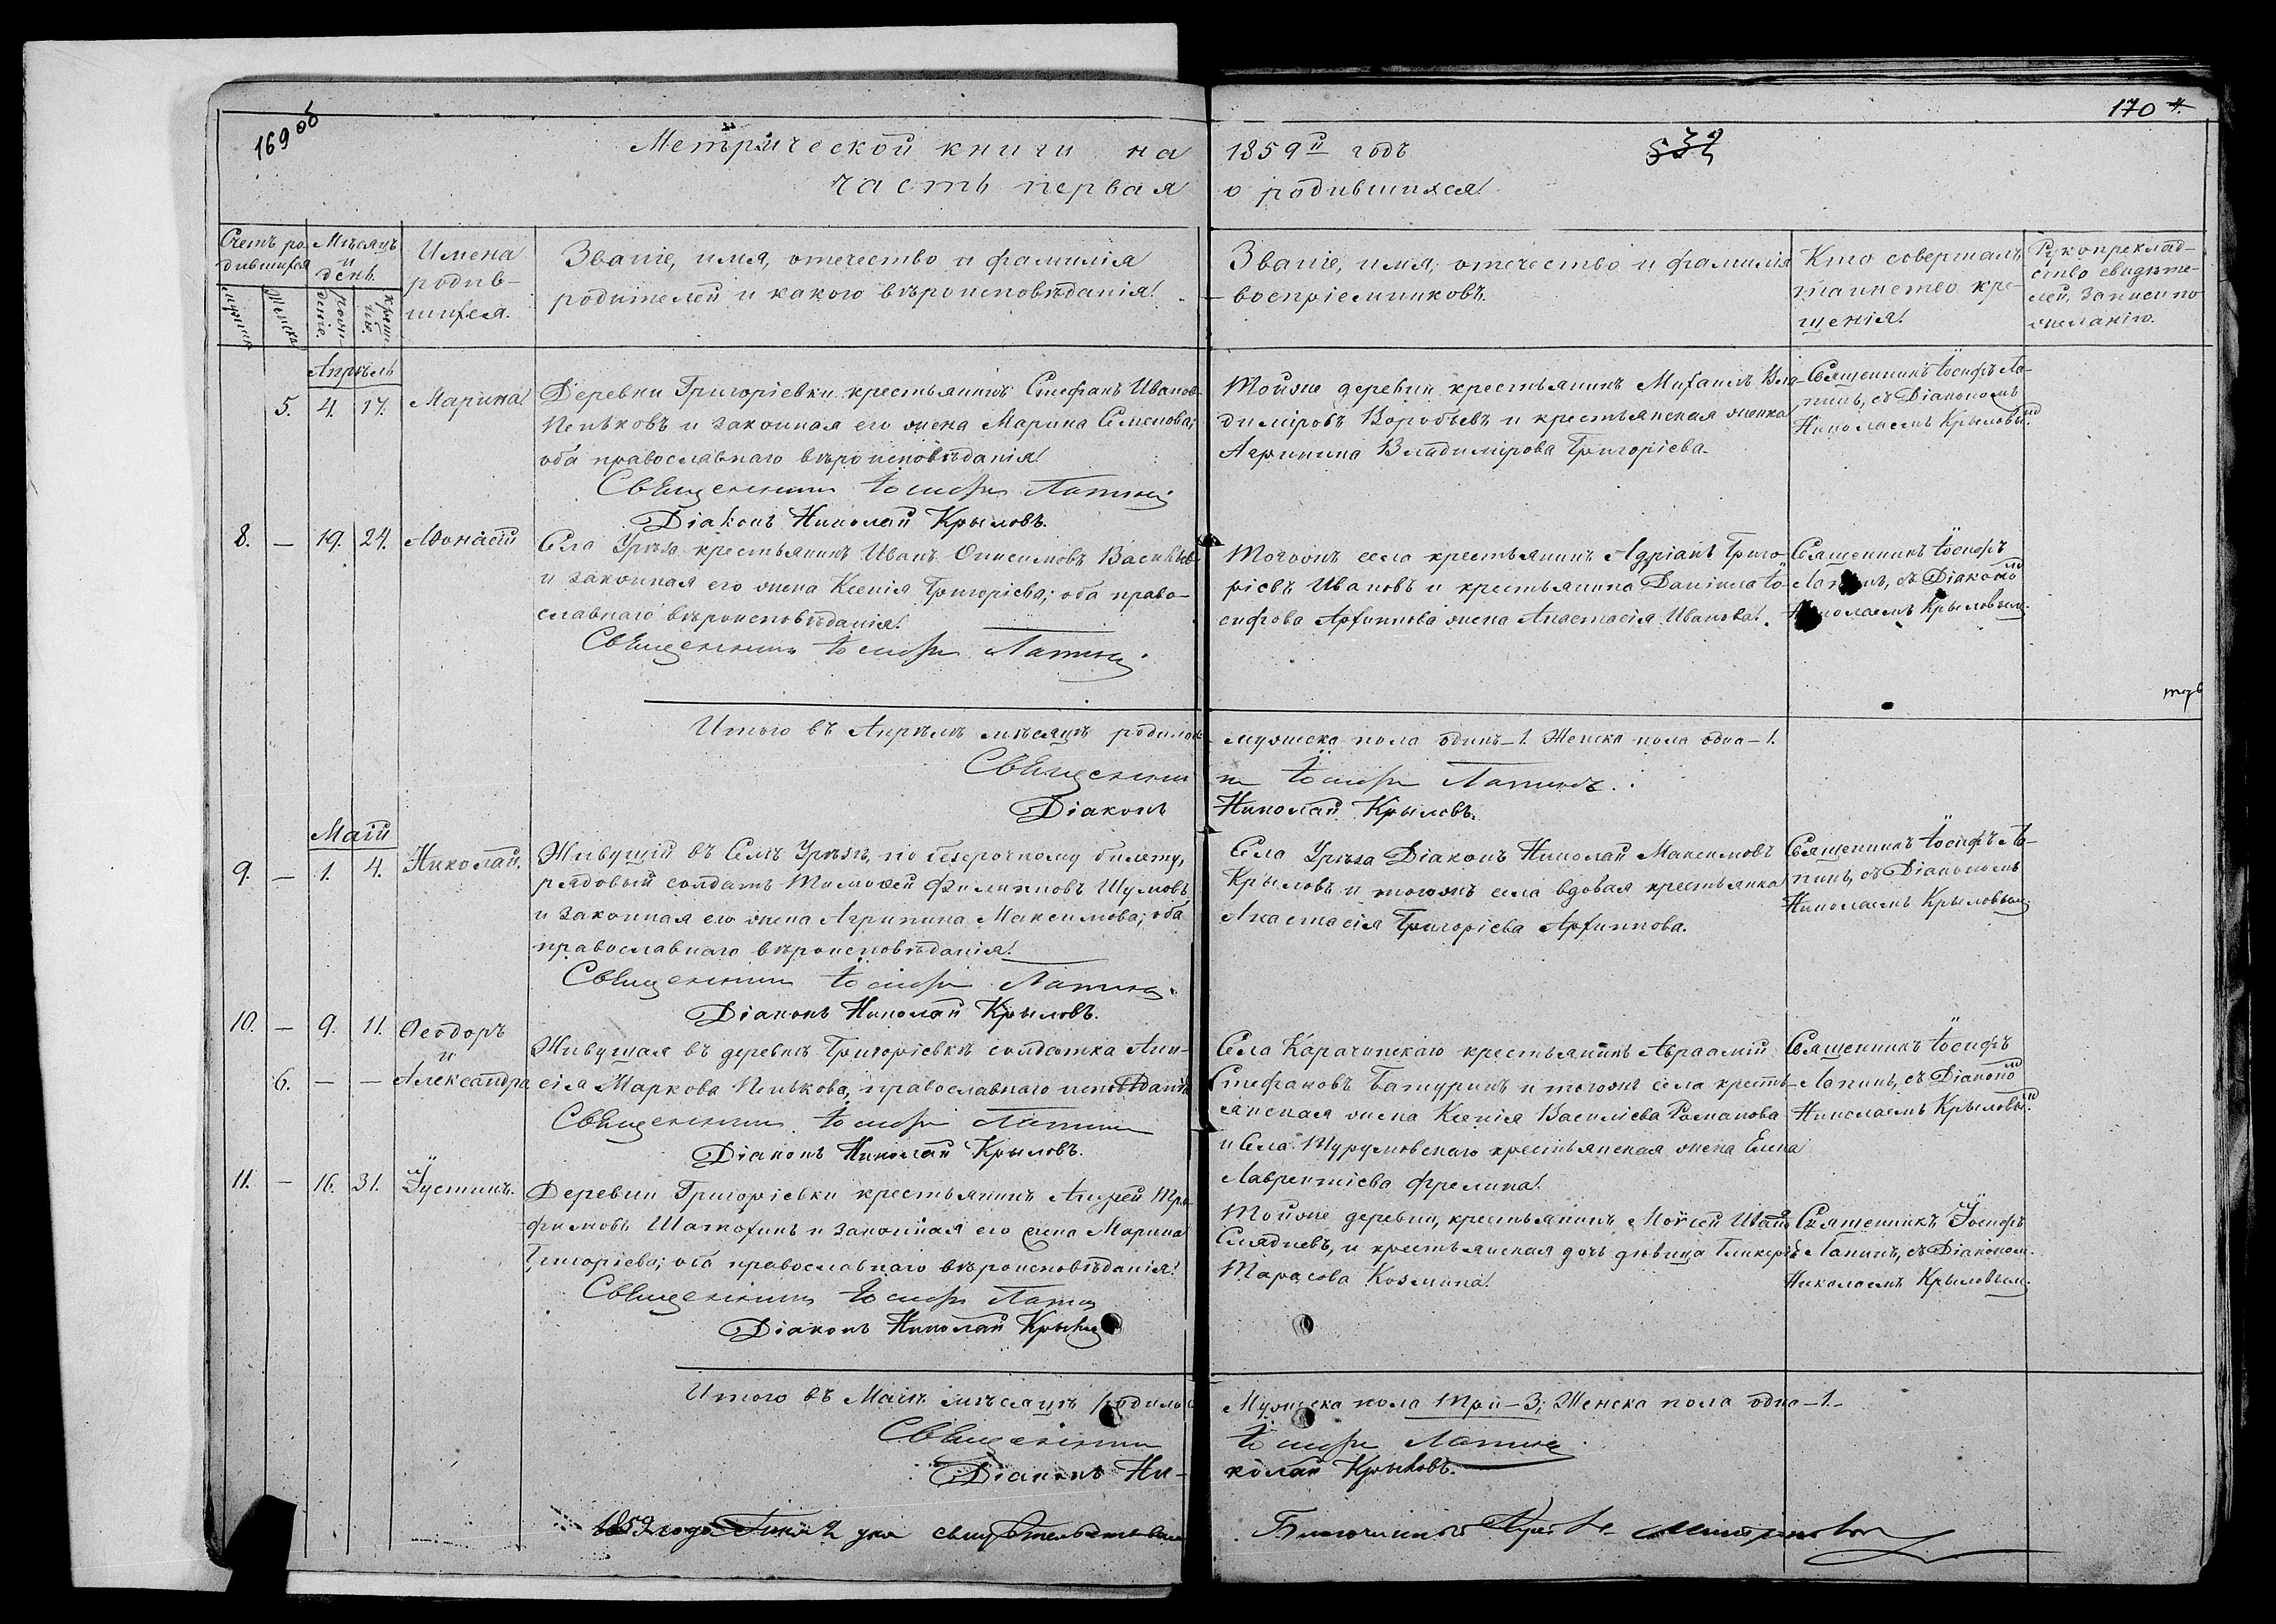 169 об
170
4.
Метрической книги на 1859й годъ
часть первая о родившихся.
Счетъ родившихся
Мѣсяцъ и день
Имена родившихся.
Званіе, имя, отечество и фамилія
родителей и какого вѣроисповѣданія.
Званіе, имя, отечество и фамилія
воспріемниковъ.
Кто совершалъ
таинство кре-
щенія.
Рукоприклад-
ство свидѣте-
лей записи по
желанію.
Апрѣль
5. 4. 17. Марина
Деревни Григоріевки крестьянинъ Стефанъ Иванов
Пеньковъ и законная его жена Марина Семенова;
оба православнаго вѣроисповѣданія.
Священникъ Іосифъ Лапинъ
Діаконъ Николай Крыловъ.
Тойже деревни крестьянинъ Михаилъ Вла-
диміровъ Воробьевъ и крестьянская женка
Агрипина Владимірова Григоріева.
Священникъ Іосифъ Ла-
пинъ, съ Діакономъ
Николаемъ Крыловым.
8. — 19. 24.
Села Урѣза крестьянинъ Иванъ Онисимовъ Васильевъ
и законная его жена Ксенія Григоріева; оба право-
славнаго вѣроисповѣданія.
Священникъ Іосифъ Лапинъ.
Тогожъ села крестьянинъ Адріанъ Григо-
ріевъ Ивановъ и крестьянина Даніила Іо-
сифова жена Анастасія Иванова.
Священникъ Іосифъ
Лапинъ, съ Діаконом
Николаемъ Крыловым.
Итого въ Апрѣлѣ мѣсяцѣ родилось мужеска пола одинъ – 1. Женска пола одна – 1.
Священникъ Іосифъ Лапинъ.
Діаконъ Николай Крыловъ.
Маій
9. — 1. 4. Николай.
Живущій въ Селѣ Урѣзѣ, по безсрочному билету,
рядовый солдатъ Тимоѳей Филипповъ Шумовъ
и законная его жена Агрипина Максимова; оба
православнаго вѣроисповѣданія.
Священникъ Іосифъ Лапинъ.
Діаконъ Николай Крыловъ.
Села Урѣза Діаконъ Николай Максимовъ
Крыловъ и тогожъ села вдовая крестьянка
Анастасія Григоріева
Священникъ Іосифъ Ла-
пинъ, съ Діакономъ
Николаемъ Крыловым.
10. — 9. 11. Ѳеодоръ
и
6. — — Александра
Живущая въ деревнѣ Григоріевкѣ солдатка
Маркова Пенькова, православнаго исповѣданія
Священникъ Іосифъ Лапинъ
Діаконъ Николай Крыловъ.
Села Карачинскаго крестьянинъ Авраамій
Стефановъ Батуринъ и тогожъ села кресть-
янская жена Ксенія Василіева Романова
и Села Турумовскаго крестьянская жена Елена
Лаврентіева
Священникъ Іосифъ
Лапинъ, съ Діаконом
Николаемъ Крыловым.
11. — 16. 31. Іустинъ.
Деревни Григоріевки крестьянинъ Андрей Тро-
фимовъ Шатохинъ и законная его жена Марина
Григоріева; оба православнаго вѣроисповѣданія.
Священникъ Іосифъ Лапин
Діаконъ Николай Крылов
Тойже деревни, крестьянинъ Моѵсей Иванов
и крестьянская дочь дѣвица Гликерія
Тарасова Козмина.
Священникъ Іосифъ
Лапинъ, съ Діаконом.
Николаемъ Крыловым.
Итого въ Маіѣ мѣсяцѣ родилось Мужеска пола три – 3; Женска пола одна – 1.
Священникъ Іосифъ Лапинъ
Діаконъ Николай Крыловъ.
1859 года дня свидѣтельствовал Благочинный